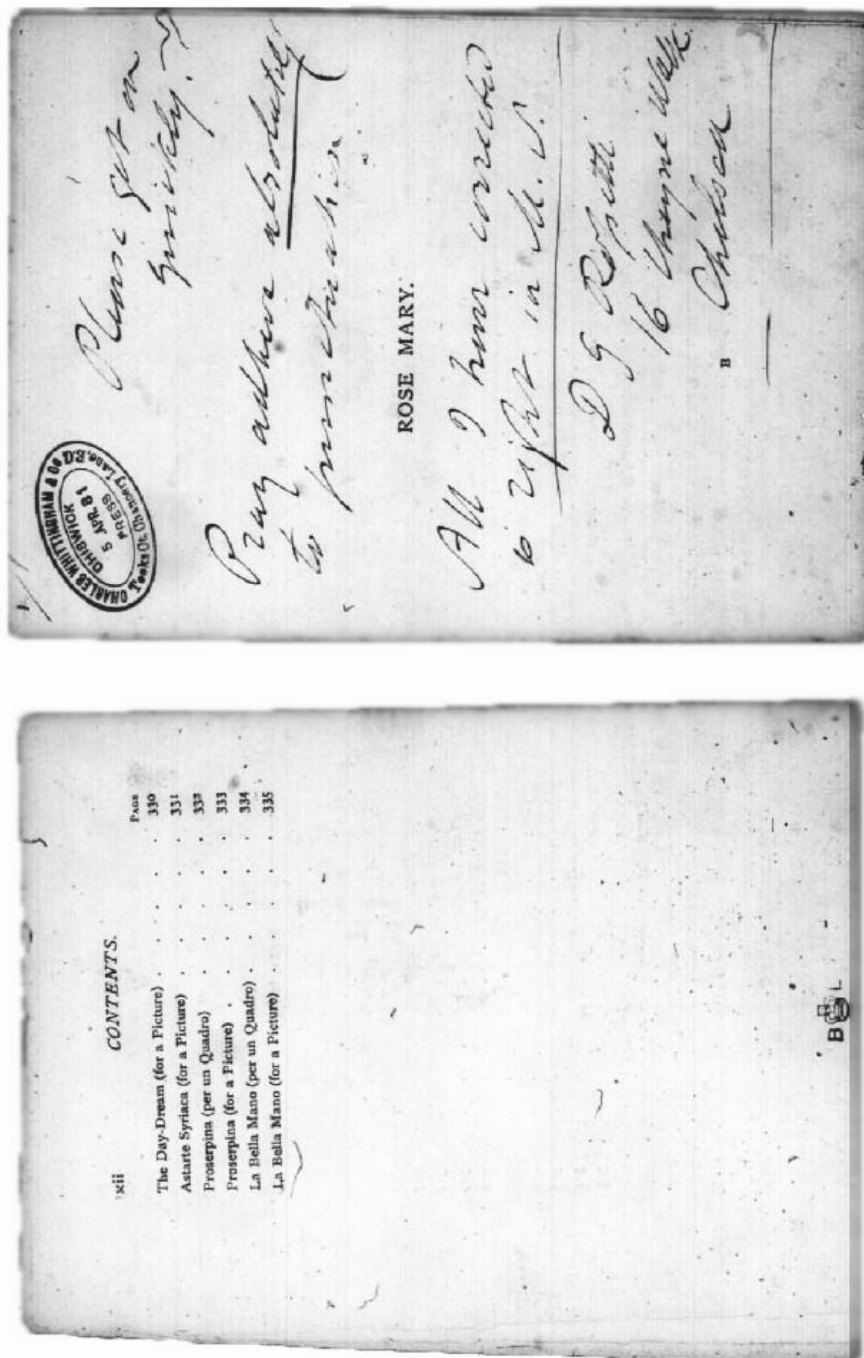 xii
CONTENTS.
PAGE
The Day-Dream (for a Picture) . . . . . . 330
Astarte Syriaca (for a Picture) . . . . . . 331
Proserpina (per un Quadro) . . . . . . 332
Proserpina (for a Picture) . . . . . . 333
La Bella Mano (per un Quadro) . . . . . . 334
La Bella Mano (for a Picture) . . . . . . 335
B L
CHARLES WHITTINGHAM & Co
CHISWICK
5 APR. 81
PRESS
Tooks Ct. Chancery Lane.
Please get on
quickly.
Pray adhere absolutely
to punctuation.
ROSE MARY.
All I have corrected
is right in M.S.
D G Rossetti
16 Cheyne Walk
Chelsea
B